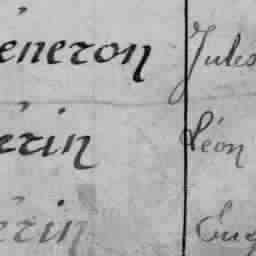 éneron Jules
érin Léon
érin Eug